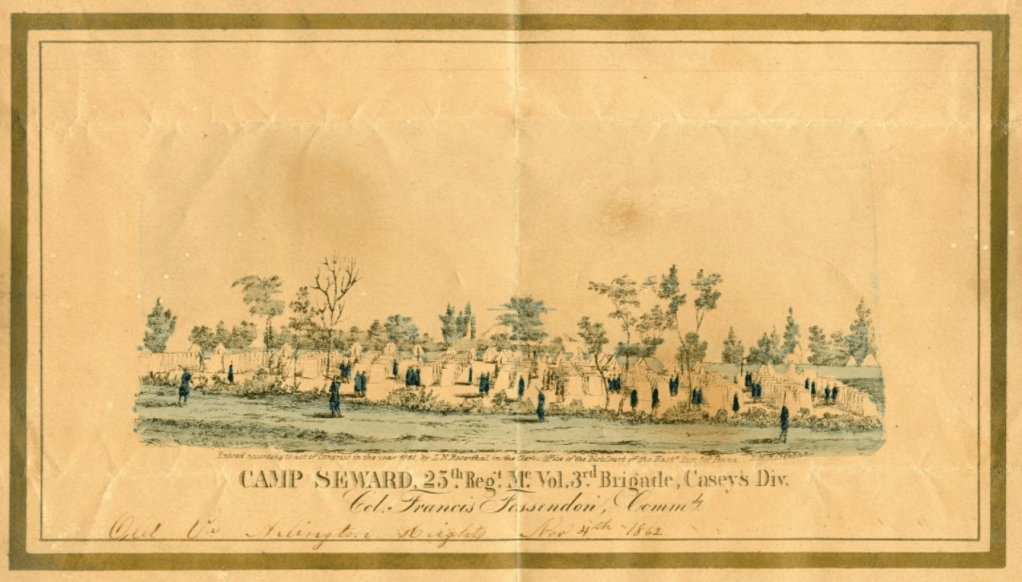 Entered according to act of Congress in the year 1862, by L. N. Rosenthal in the Clerks Office of the Dist. Court of the East.ⁿ Dist. of Penna.
CAMP SEWARD, 25ᵗʰ Regᵗ. Mᵉ. Vol. 3ʳᵈ Brigade, Casey's Div.
Col. Francis Fessendon, Commᵈᵍ
Va Arlington Heights Nov 4ᵗʰ 1862